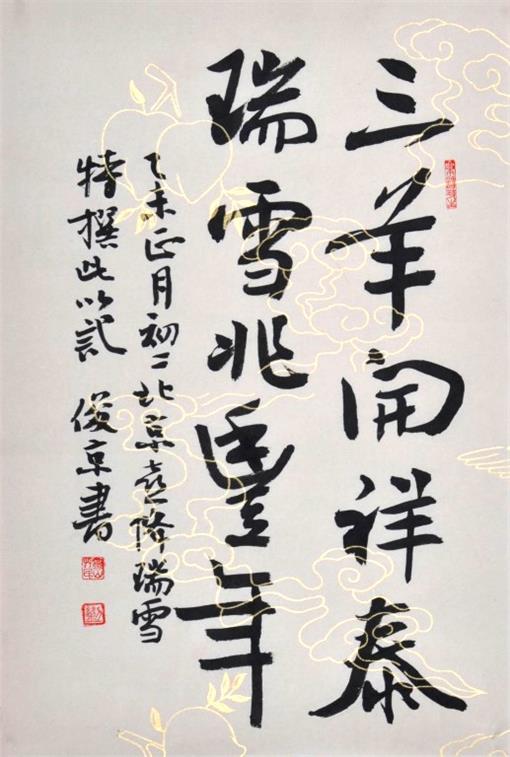 三羊開祥泰
瑞雪兆豐年
乙未正月初二北京喜降瑞雪
特撰此以記 俊京書